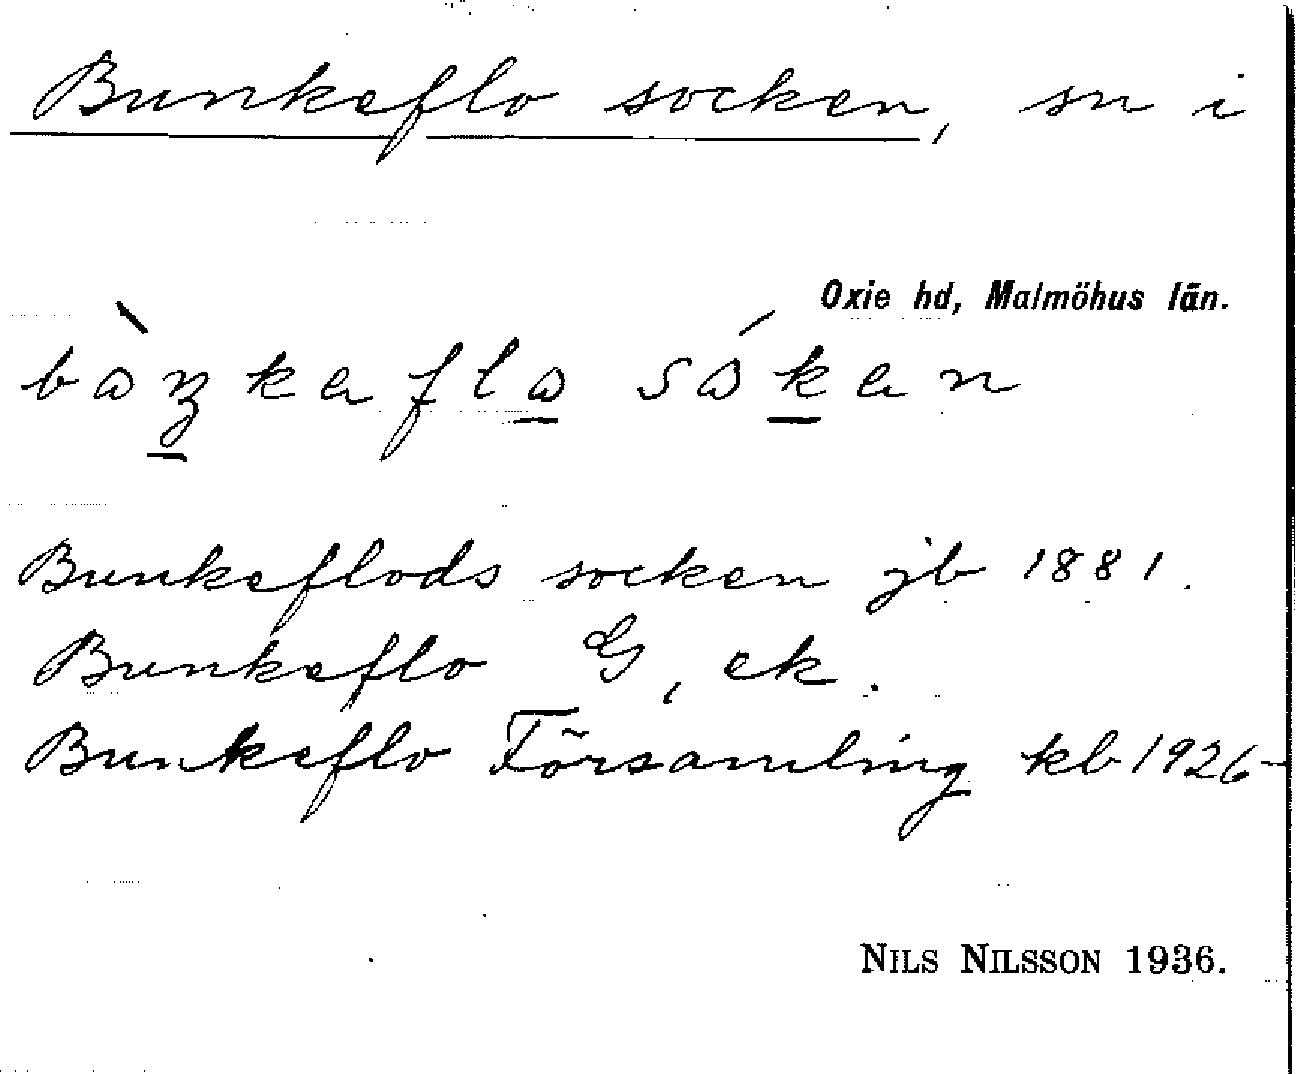 Bunkeflo socken, sn i
Oxie hd, Malmöhus län.
Bunkeflods socken jb 1881.
Bunkeflo G, ek.
Bunkeflo Församling kb 1926-
NILS NILSSON 1936.